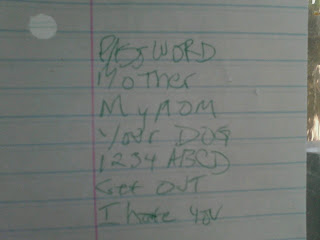 PASSWORD
Mother
My MOM
Your DOG
1234 ABCD
Get OUT
I hate you